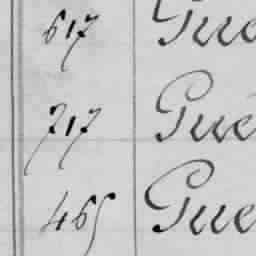 617 Gue
717 Gue
465 Gue